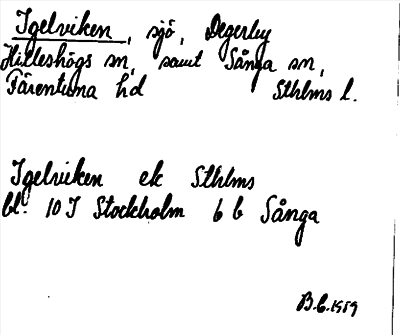 Igelviken, sjö, Degerby
Hilleshögs sn, samt Sånga sn,
Färentuna hd Sthlms l.
Igelviken ek Sthlms
bl. 10 I Stockholm 6 b Sånga
B.C. 1959